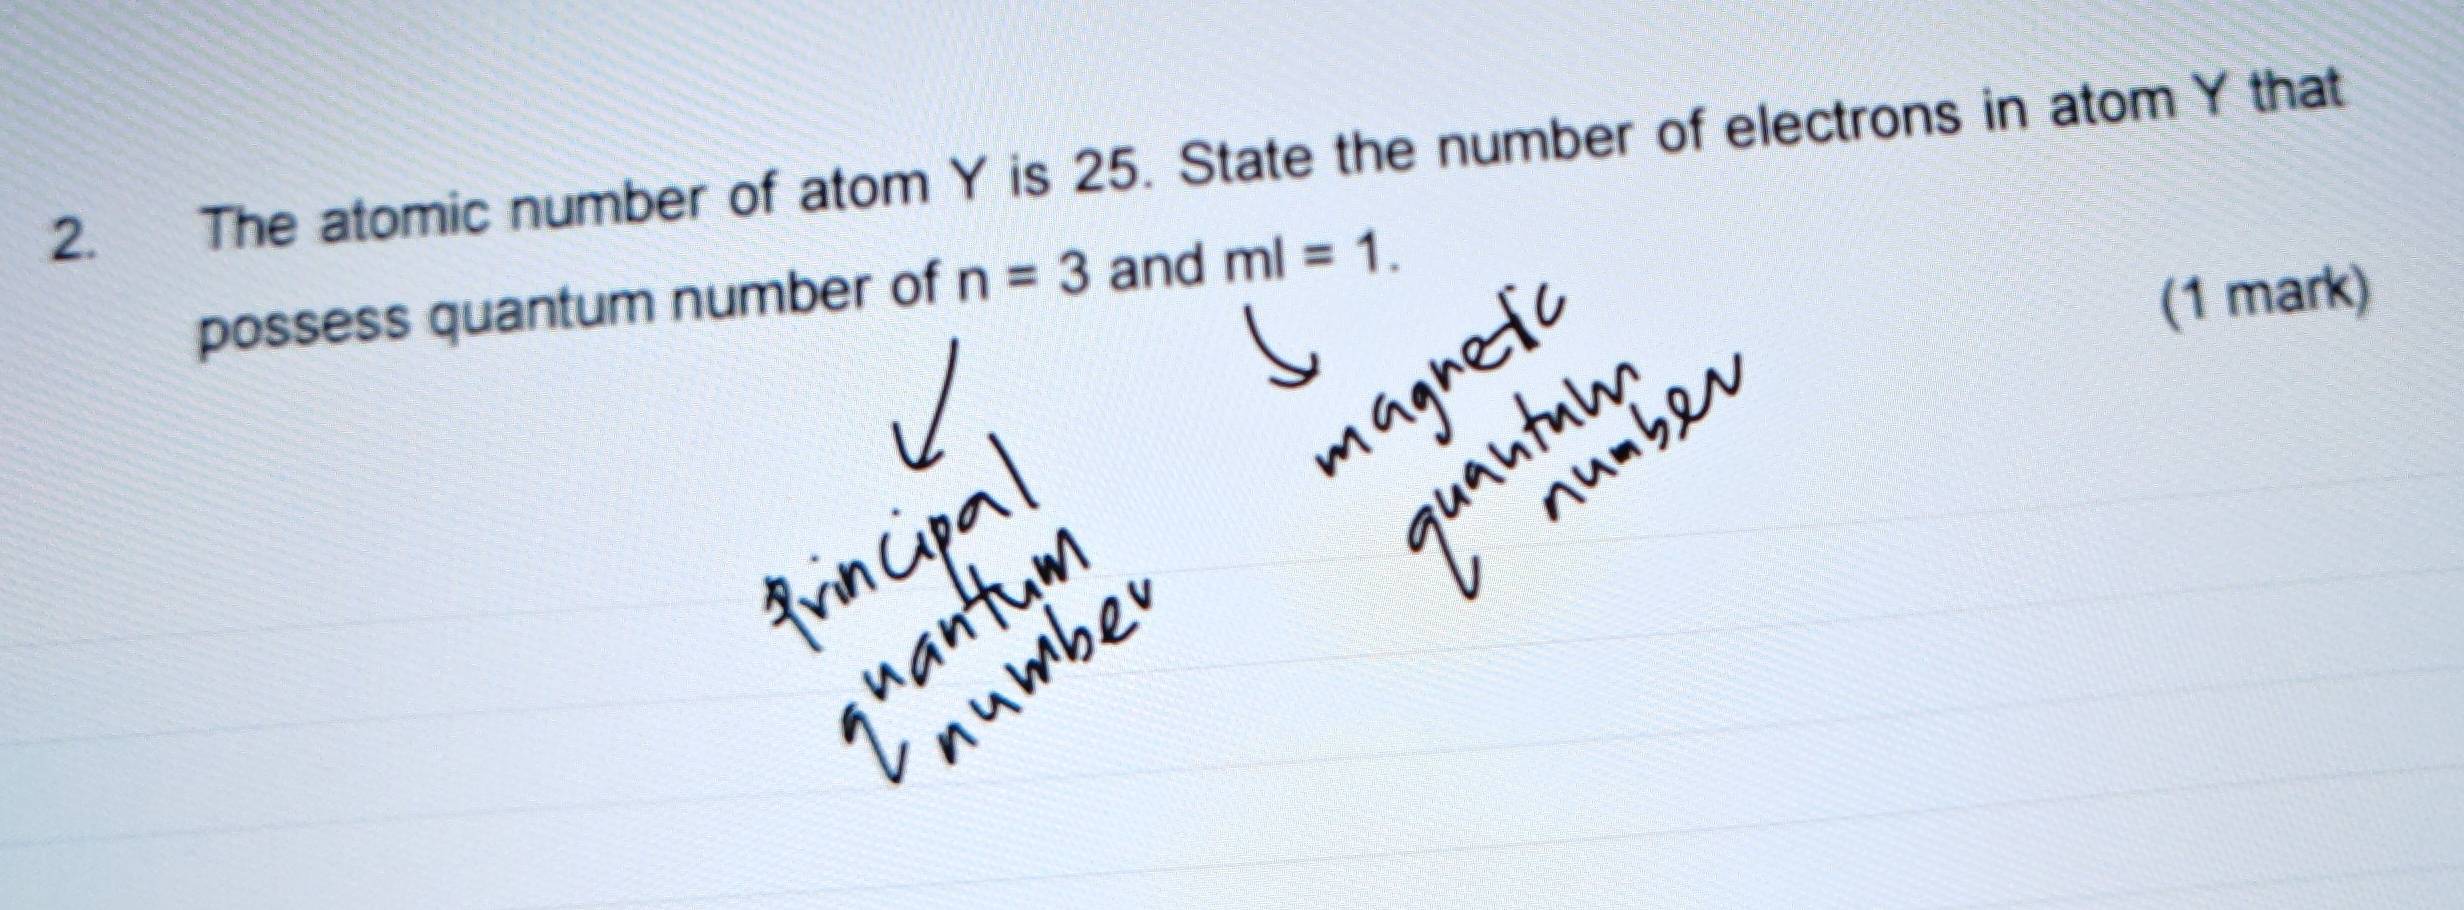 2. The atomic number of atom Y is 25. State the number of electrons in atom Y that
possess quantum number of n = 3 and ml = 1.
(1 mark)
principal
quantum
number
magnetic
quantum
number